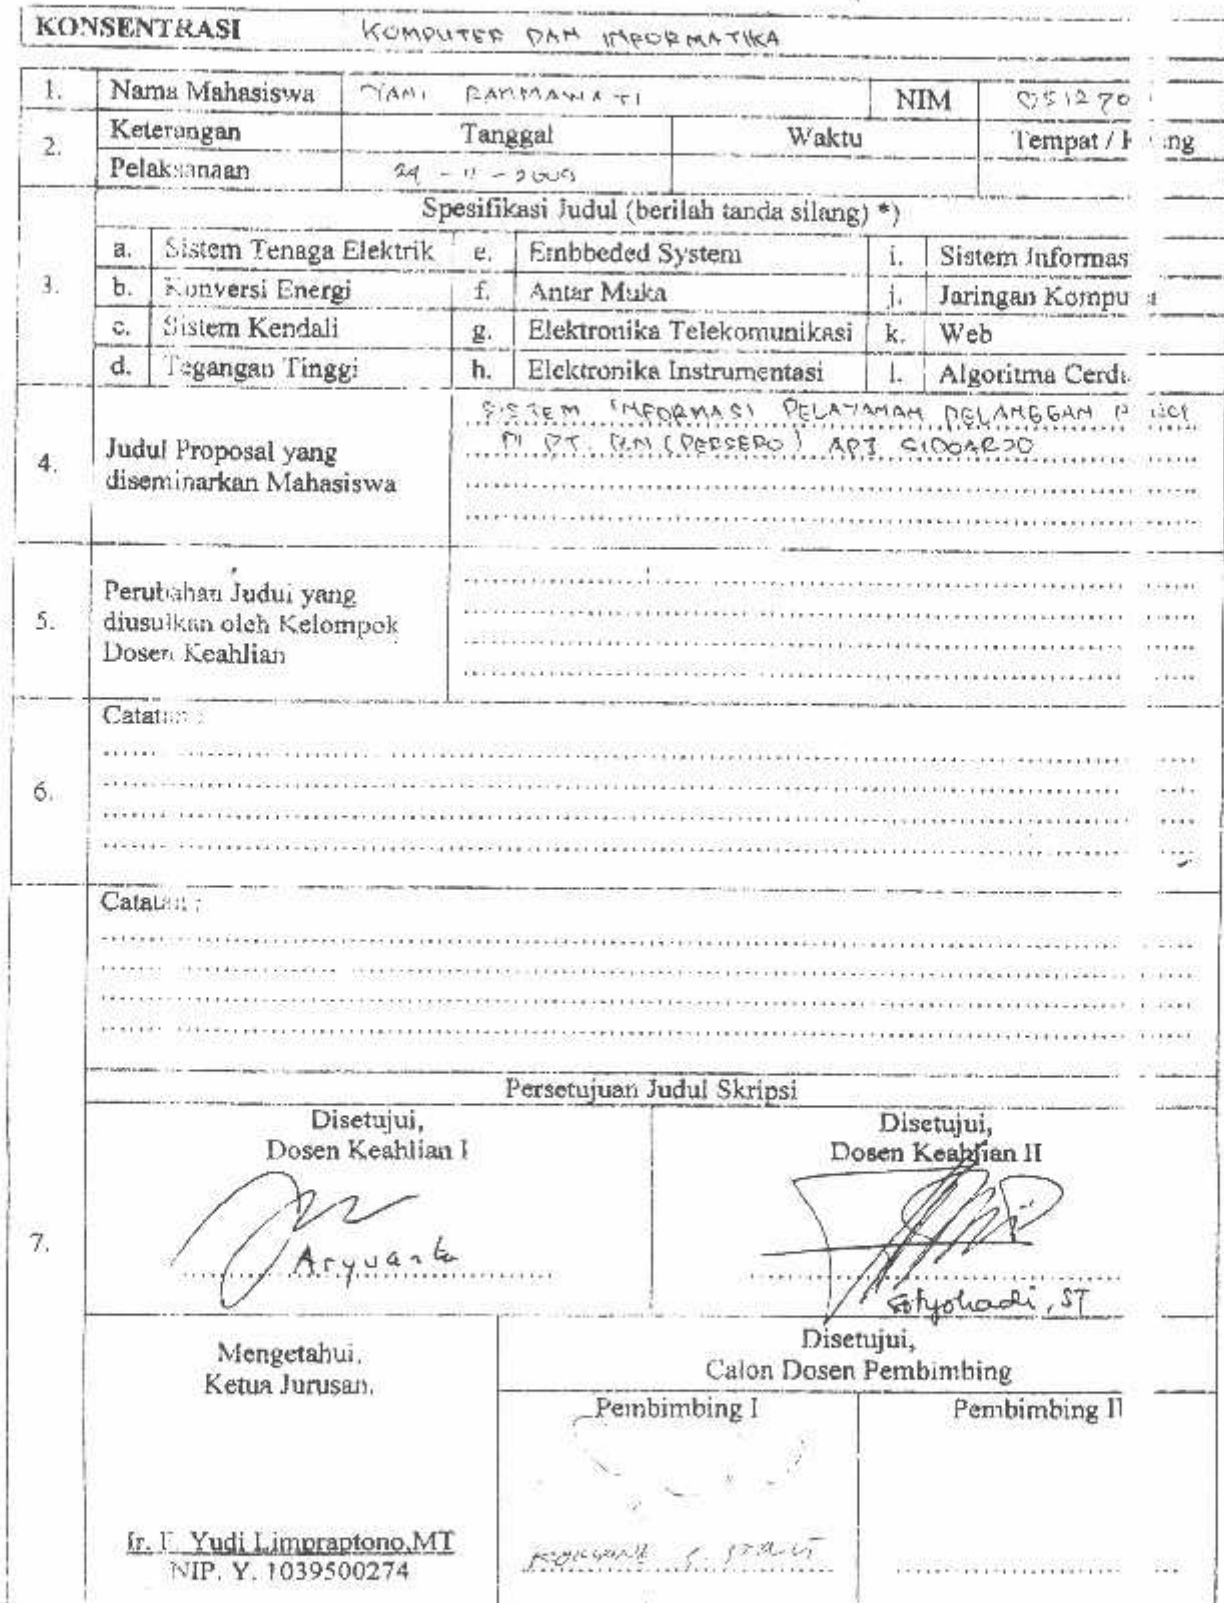 KONSENTRASI KOMPUTER DAN INFORMATIKA
1. Nama Mahasiswa YANI RAHMAWATI NIM 051270
2. Keterangan Tanggal Waktu Tempat /
Pelaksanaan 24 - 11 - 2009
Spesifikasi Judul (berilah tanda silang) *)
3.
a. Sistem Tenaga Elektrik e. Embbeded System i. Sistem Informas
b. Konversi Energi f. Antar Muka j. Jaringan Kompu
c. Sistem Kendali g. Elektronika Telekomunikasi k. Web
d. Tegangan Tinggi h. Elektronika Instrumentasi l. Algoritma Cerd
4. Judul Proposal yang
diseminarkan Mahasiswa
SISTEM INFORMASI PELAYANAN PELANGGAN
DI PT. (PERSERO) APJ SIDOARJO
5. Perubahan Judul yang
diusulkan oleh Kelompok
Dosen Keahlian
6. Catatan :
Catatan :
7. Persetujuan Judul Skripsi
Disetujui,
Dosen Keahlian I
Aryuanto
Disetujui,
Dosen Keahlian II
Sotyohadi, ST
Mengetahui,
Ketua Jurusan,
Ir. F. Yudi Limpraptono,MT
NIP. Y. 1039500274
Disetujui,
Calon Dosen Pembimbing
Pembimbing I
Pembimbing II